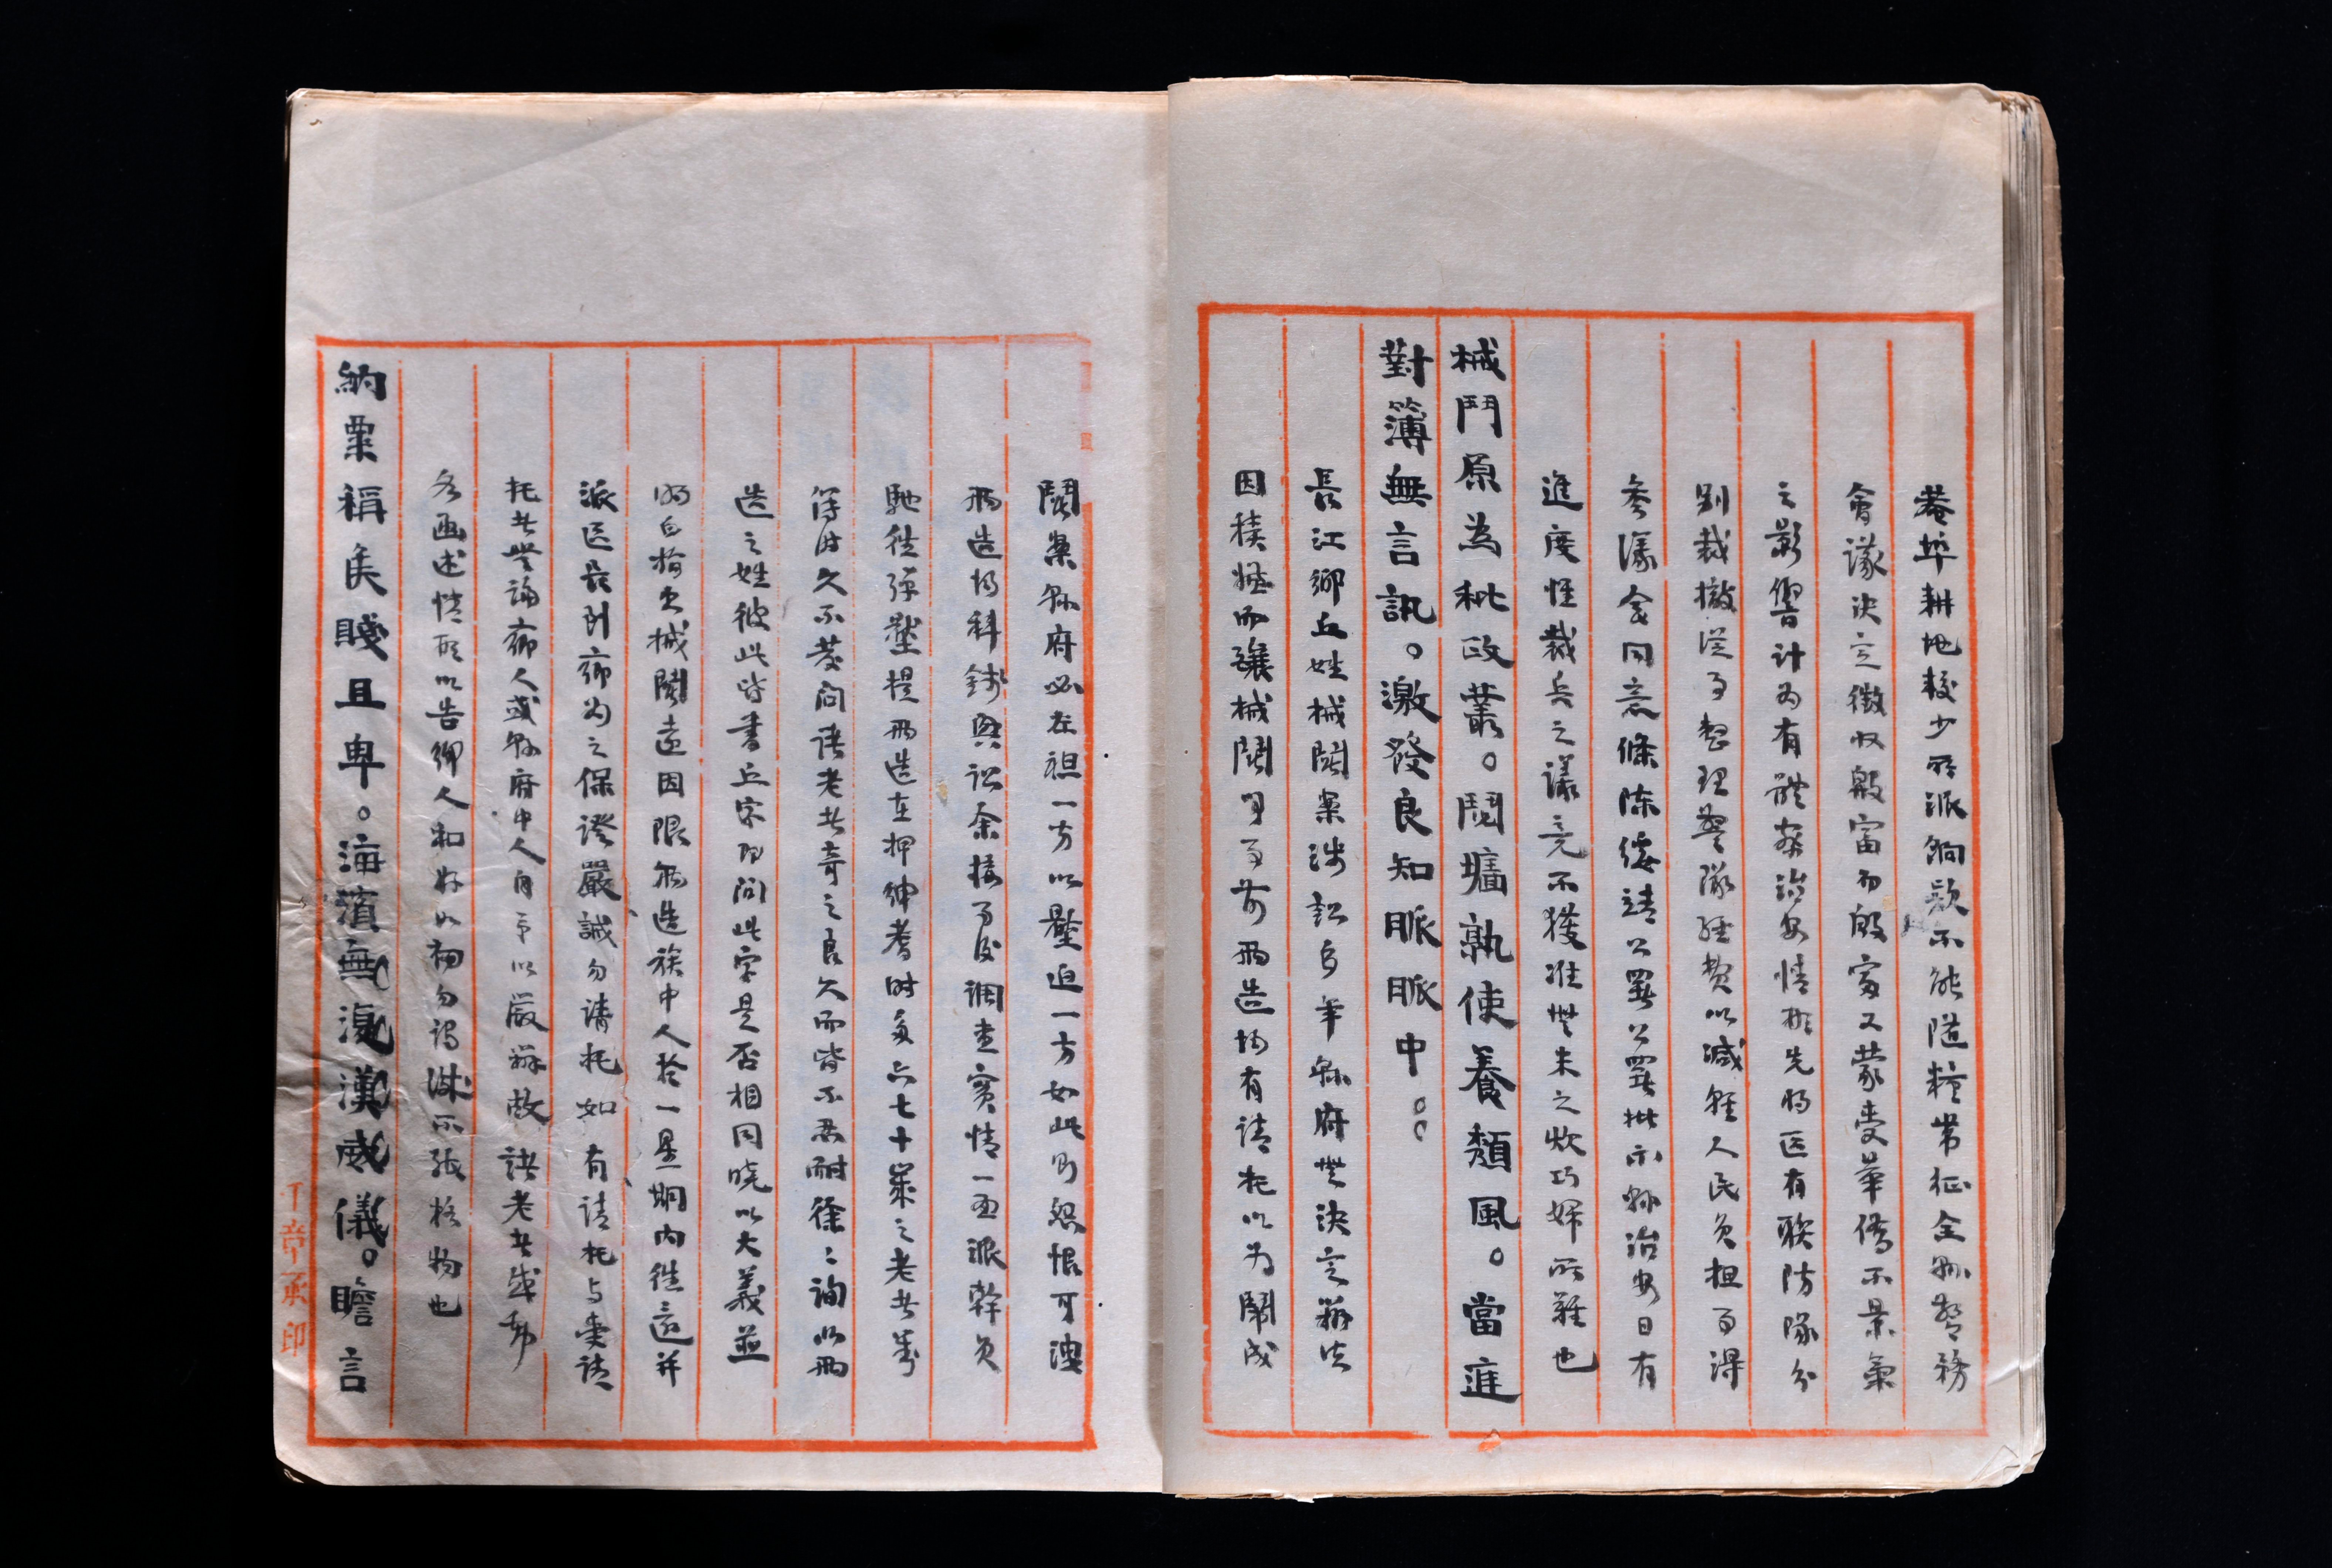 菴埠耕地較少所派餉款不能隨糧帶征全縣警務
會議決定徵收殷富而殷富又蒙受華僑不景氣
之影響計為有體察治安情形先將區有聯防隊分
別裁撤從事整理警隊經費以減輕人民負担事得
參議會同意條陳綏靖公署公署批示縣治安日有
進度惟裁兵之議竟不獲准無米之炊巧婦所難也
械鬥原為秕政叢。鬩墻孰使養頹風。當進
對簿無言訊。激發良知脈脈中。。
長江鄉丘姓械鬪案涉訟多年縣府無決定辦法
因積嫌而釀械鬪司事者兩造均有請托以為鬧成
鬪案縣府必在袒一方以壓迫一方如此則怨恨可洩
兩造均科錢與訟余接事後調查實情一面派幹員
馳往彈壓提兩造在押紳耆時多六七十歲之老者
傳少久不發問諸老者奇之良久而皆不忍耐徐徐詢以兩
造之姓彼此皆書丘字即問此字是否相同曉以大義並
明白指出械鬪遠因限兩造族中人於一星期內往還并
派區長到鄉為之保證嚴誡勿請托如有請托与受請
托者無論鄉人或縣府中人自予以嚴辦故諸老者感動
各画述情形以告鄉人和好如初勿謂洙不孤格物也
納粟稱侯賤且卑。海濱無復漢威儀。瞻言
丁章承印